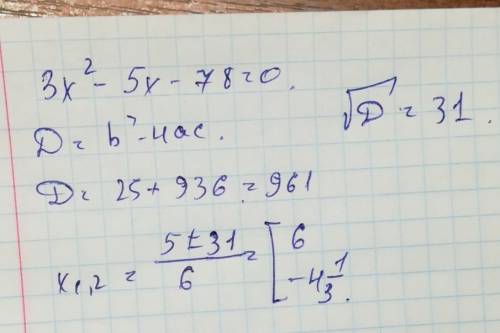 3x² - 5x - 78 = 0.
D = b² - 4ac.
√D = 31.
D = 25 + 936 = 961
x₁,₂ = (5 ± 31)/6 = [6
-4 1/3.